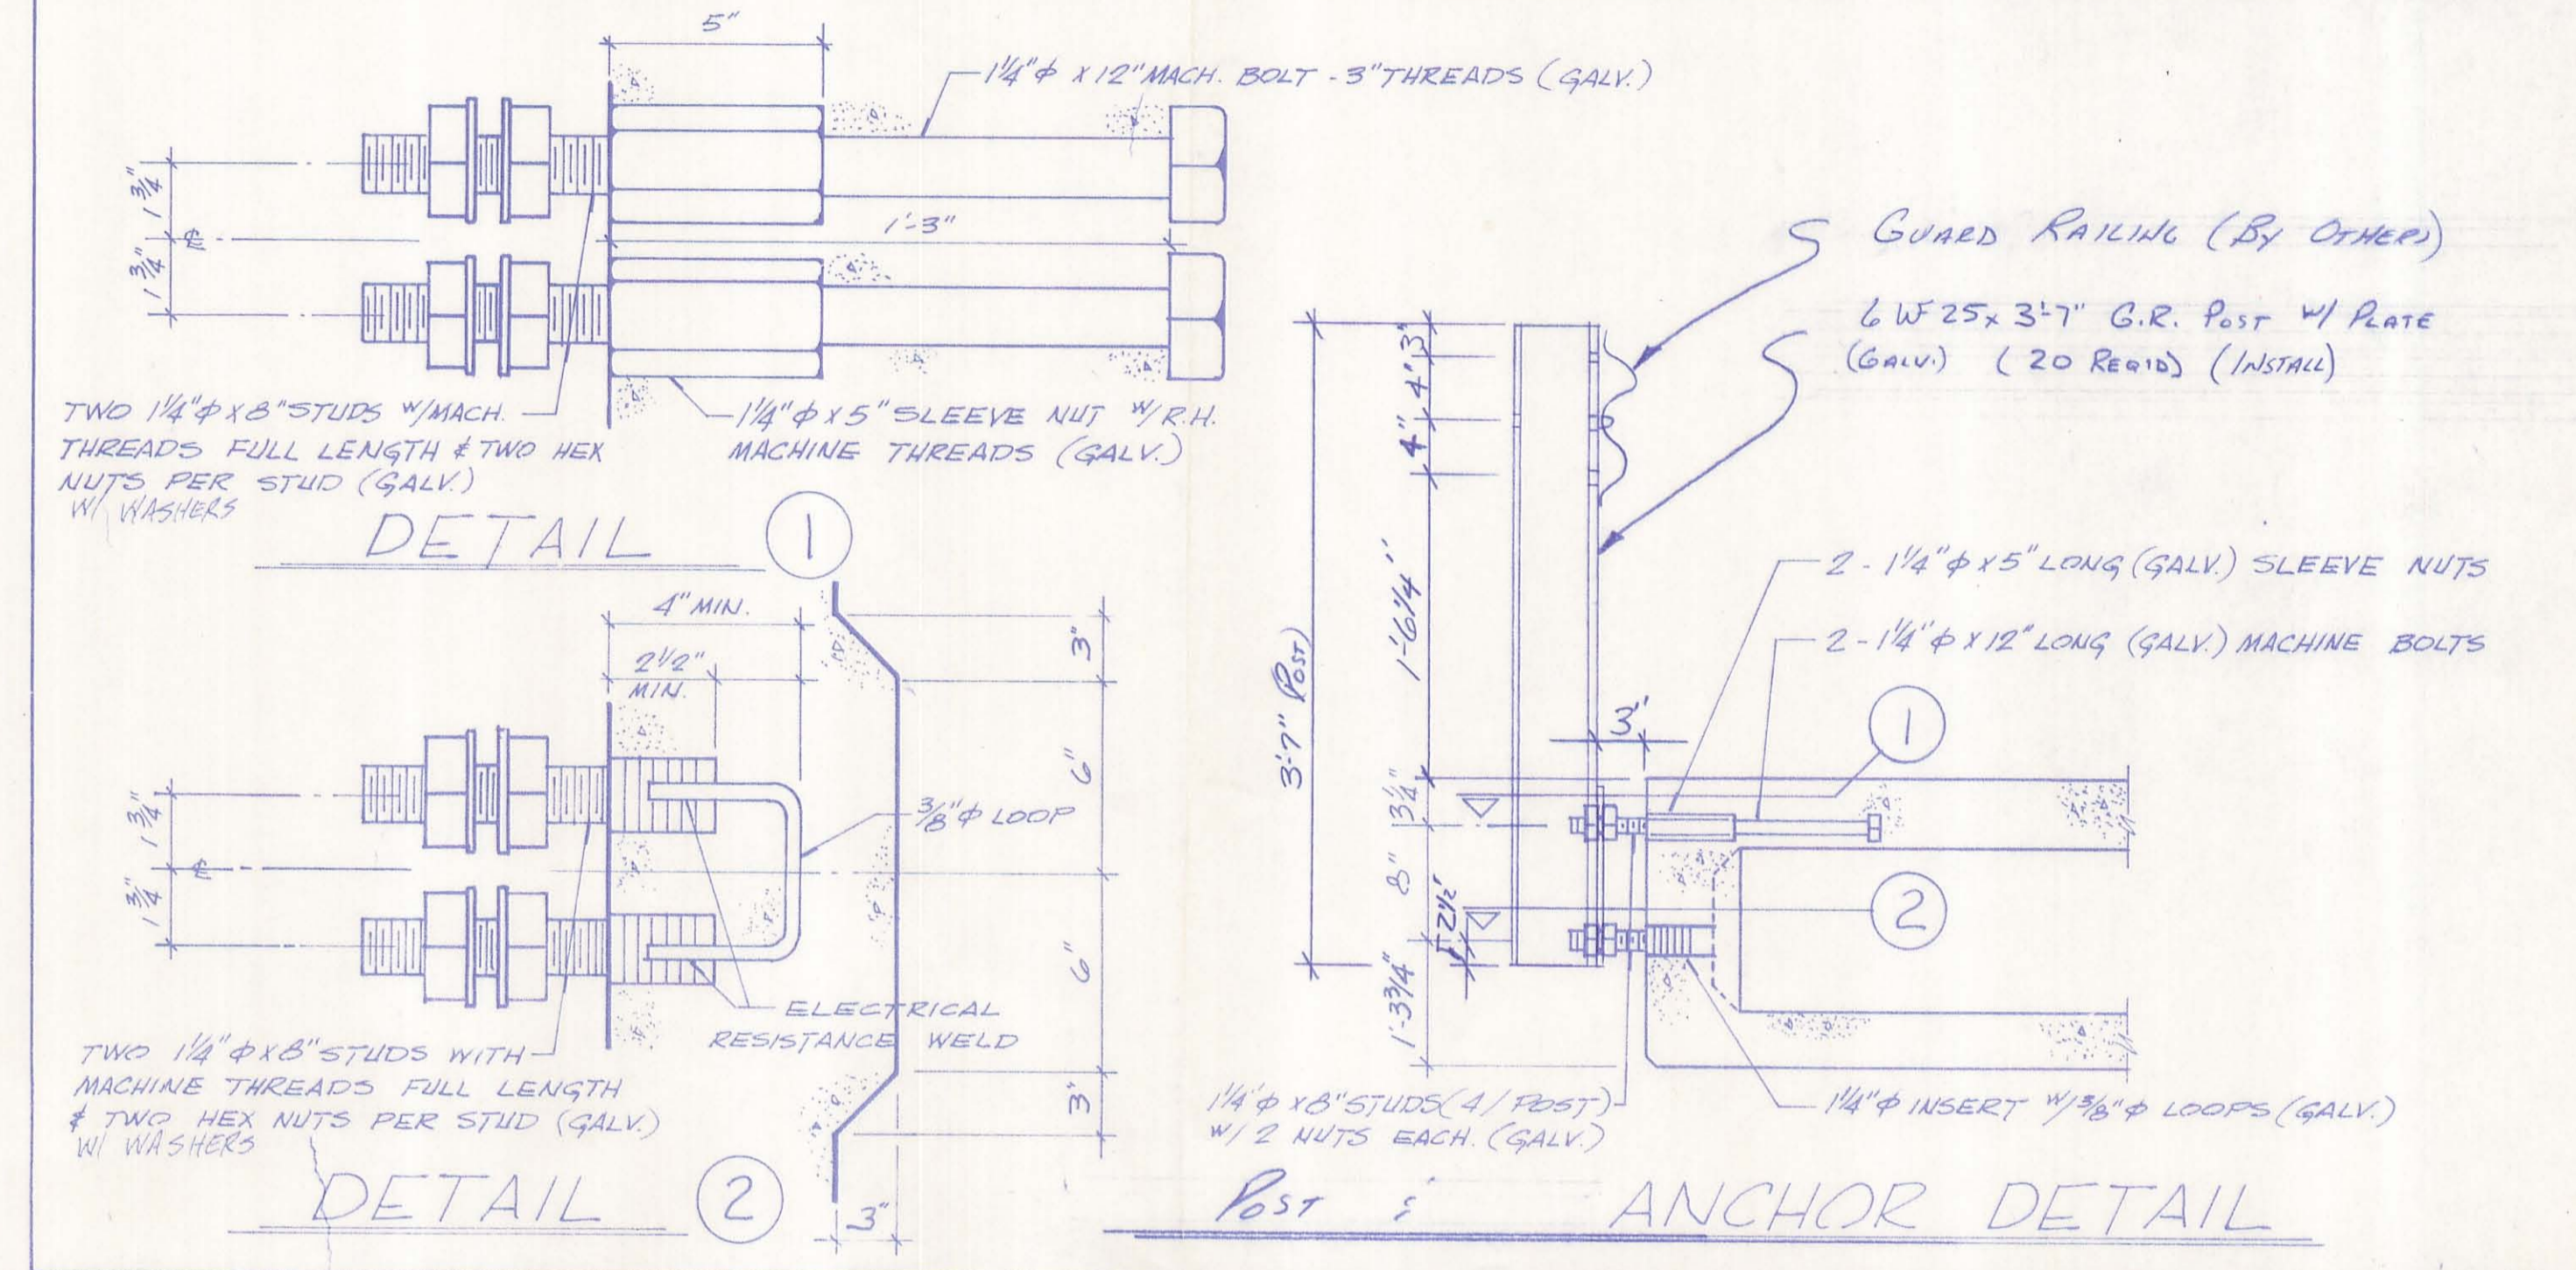 5"
1¼"ϕ x 12" MACH. BOLT - 3" THREADS (GALV.)
1¾"
1¾"
℄
1'-3"
TWO 1¼"ϕ x 8" STUDS W/MACH.
THREADS FULL LENGTH & TWO HEX
NUTS PER STUD (GALV.)
W/ WASHERS
1¼"ϕ x 5" SLEEVE NUT W/R.H.
MACHINE THREADS (GALV.)
DETAIL 1
4" MIN.
2½"
MIN.
3"
6"
6"
3"
3"
1¾"
1¾"
℄
⅜"ϕ LOOP
ELECTRICAL
RESISTANCE WELD
TWO 1¼"ϕ x 8" STUDS WITH
MACHINE THREADS FULL LENGTH
& TWO HEX NUTS PER STUD (GALV.)
W/ WASHERS
DETAIL 2
GUARD RAILING (BY OTHERS)
6 WF 25 x 3'-7" G.R. POST W/ PLATE
(GALV.) (20 REQ'D) (INSTALL)
3"
4"
4"
1'-6¼"
3'-7" POST)
3"
3¼"
8"
2½"
1'-3¾"
2 - 1¼"ϕ x 5" LONG (GALV.) SLEEVE NUTS
2 - 1¼"ϕ x 12" LONG (GALV.) MACHINE BOLTS
1
2
1¼"ϕ x 8" STUDS (4/POST)
W/ 2 NUTS EACH. (GALV.)
1¼"ϕ INSERT W/⅜"ϕ LOOPS (GALV.)
POST & ANCHOR DETAIL